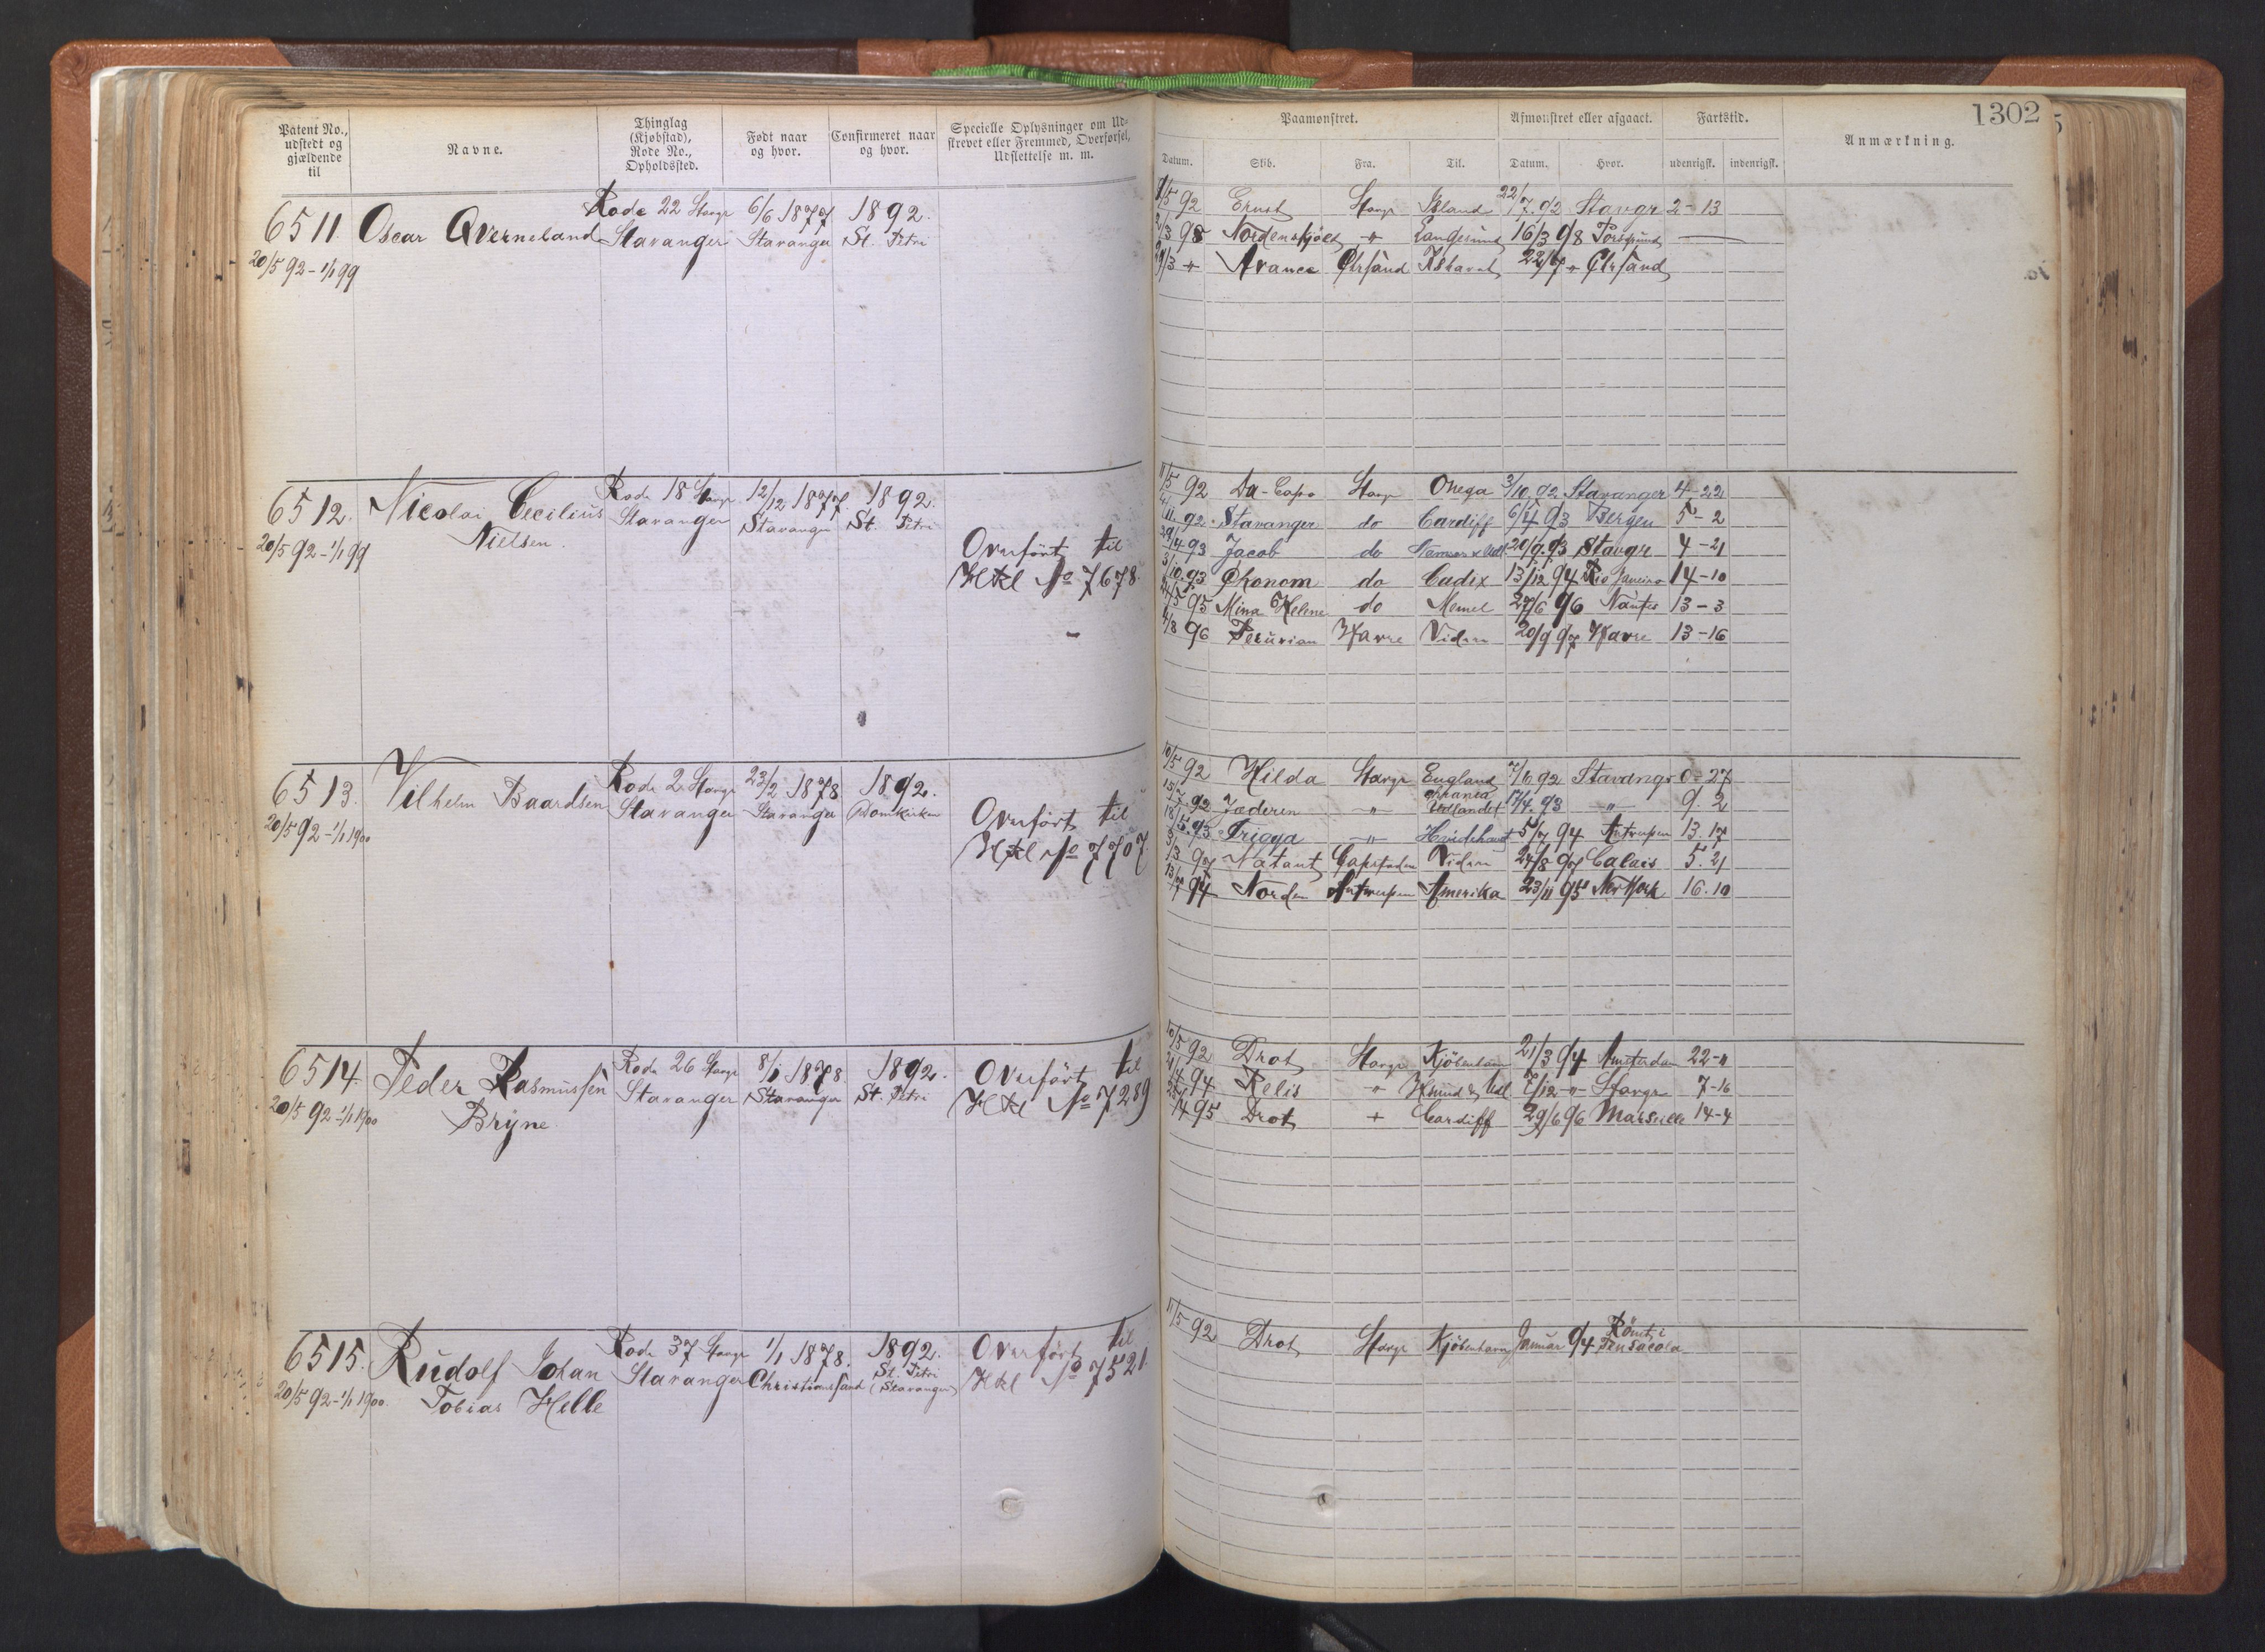 1302
Patent No., udstedt og gjældende til
Navne.
Thinglag (Kjøbstad), Rode No., Opholdssted.
Født naar og hvor.
Confirmeret naar og hvor.
Specielle Oplysninger om Ud-
skrevet eller Fremmed, Overførsel,
Udslettelse m. m.
Paamønstret.
Afmønstret eller afgaaet.
Fartstid.
Anmærkning.
Datum.
Skib.
Fra.
Til.
Datum.
Hvor.
udenrigsk.
indenrigsk.
6511. Oscar Qverneland Rode 22 Stavgr 6/6 1877 1892.
Stavanger Stavanger St. Petri
20/5 92 - 1/1 99
/5 92 Ernst Stavgr Island 22/7.92 Stavgr 2-13
/3 98 Nordenskjöld " Langesund 16/3 98 Porsgrund
/3 " Avance Chrsand 22/7 " Chrsand
6512. Nicolai Cecilius Rode 18 Stavgr 12/12 1877. 1892.
Nielsen. Stavanger Stavanger St. Petri
20/5 92 - 1/1 99
Overført til
Hkl No 7678.
11/5 92 Da-Capo Stavgr Onega 3/10 92 Stavanger 4-22
/11.92. Stavanger do Cardiff 6/4 93 Bergen 5-2
29/4.93 Jacob do 20/9.93 Stavgr 4-21
3/10.93 Økonom do Cadix 13/12 94 Rio Janeiro 14-10
/5 95 Mina Helene do Memel 27/6 96 Nantes 13-3
4/8 96 Peruvian Havre Videre 20/9 97 Havre 13-16
6513. Vilhelm Baardsen Rode 2 Stavgr 23/2 1878 1892.
Stavanger Stavanger Domkirken
20/5 92 - 1/1 1900
Overført til
Hkl No 7707.
10/5 92 Hilda Stavgr England 7/6 92 Stavangr 0-27
15/7.92 Jæderen " Udlandet 17/4.93 " 9.2
18/5.93 Frigga " 5/7 94 Antwerpen 13.17
/3 97 Natant Capstaden Videre 24/8 97 Calais 5.21
13/7 94 Norden Antwerpen Amerika 23/11 95 New York 16.10
6514. Peder Rasmussen Rode 26 Stavgr 8/1 1878. 1892.
Bryne Stavanger Stavanger St. Petri
20/5 92 - 1/1 1900
Overført til
Hkl No 7289
10/5 92 Drot Stavgr Kjöbenhavn 21/3 94 Amsterdam 22-11
21/4 94 Relis " Hsund & Udl 7/12 " Stavgr 7-16
/4 95 Drot + Cardiff 29/6 96 Marseille 14-4
6515. Rudolf Johan Rode 37 Stavgr 1/1 1878. 1892.
Tobias Helle Stavanger Christiansand St. Petri (Stavanger)
20/5 92 - 1/1 1900.
Overført til
Hkl No 7521.
11/5 92 Drot Stavgr Kjöbenhavn Januar 94 Römt i Pensacola